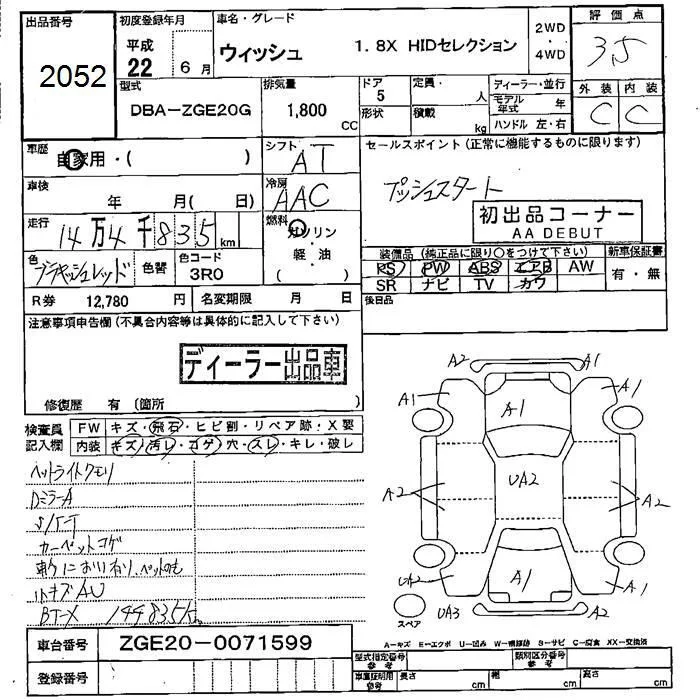 出品番号 初度登録年月 車名・グレード 2WD・4WD 評価点
2052 平成22 6月 ウィッシュ 1.8X HIDセレクション 3.5
型式 排気量 ドア 定員・ 人 ディーラー・並行 外装 内装
DBA-ZGE20G 1,800 CC 5 形状 積載 kg モデル年式 年 C C
ハンドル 左・右
車歴 自家用・( ) シフト AT セールスポイント(正常に機能するものに限ります)
車検 年 月( 日) 冷房 AAC プッシュスタート
初出品コーナー
AA DEBUT
走行 14万4千835km 燃料 ガソリン・軽油 ( )
装備品(純正品に限り○をつけて下さい) 新車保証書
色 ブラキッシュレッド 色替 色コード 3R0 PS PW ABS エアB AW 有・無
SR ナビ TV カワ
R券 12,780 円 名変期限 月 日 後日品
注意事項申告欄(不具合内容等は具体的に記入して下さい)
ディーラー出品車
修復歴 有(箇所 )
検査員記入欄 FW キズ・飛石・ヒビ割・リペア跡・X要
内装 キズ・汚レ・コゲ・穴・スレ・キレ・破レ
ヘットライトクモリ
DミラーA
カーペットコゲ
小キズAU
BT-X 144835k
A2 A1
A1 A1 A1
A2 UA2 A2
UA2 A1 A1
UA3 A2
スペア
A-キズ E-エクボ U-凹み W-補修跡 S-サビ C-腐食 XX-交換済
車台番号 ZGE20-0071599 型式指定番号参考 類別区分番号参考
登録番号 車庫証明用参考 長さ cm 幅 cm 高さ cm